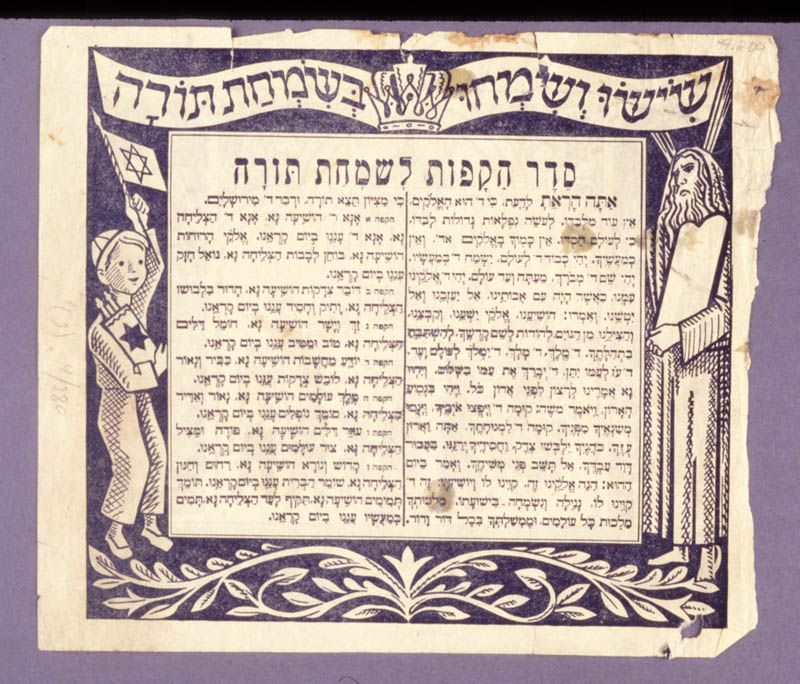 שִׂישׂוּ וְשִׂמְחוּ בְּשִׂמְחַת תּוֹרָה
סֵדֶר הַקָּפוֹת לְשִׂמְחַת תּוֹרָה
אַתָּה הָרְאֵתָ לָדַעַת, כִּי ד' הוּא הָאֱלֹקִים,
אֵין עוֹד מִלְבַדּוֹ. לְעֹשֵׂה נִפְלָאוֹת גְּדוֹלוֹת לְבַדּוֹ,
כִּי לְעוֹלָם חַסְדּוֹ. אֵין כָּמוֹךָ בָאֱלֹקִים אד', וְאֵין
כְּמַעֲשֶׂיךָ. יְהִי כְבוֹד ד' לְעוֹלָם, יִשְׂמַח ד' בְּמַעֲשָׂיו.
יְהִי שֵׁם ד' מְבֹרָךְ, מֵעַתָּה וְעַד עוֹלָם. יְהִי ד' אֱלֹקֵינוּ
עִמָּנוּ, כַּאֲשֶׁר הָיָה עִם אֲבוֹתֵינוּ, אַל יַעַזְבֵנוּ וְאַל
יִטְּשֵׁנוּ. וְאִמְרוּ: הוֹשִׁיעֵנוּ, אֱלֹקֵי יִשְׁעֵנוּ, וְקַבְּצֵנוּ,
וְהַצִּילֵנוּ מִן הַגּוֹיִם, לְהוֹדוֹת לְשֵׁם קָדְשֶׁךָ, לְהִשְׁתַּבֵּחַ
בִּתְהִלָּתֶךָ. ד' מֶלֶךְ, ד' מָלָךְ, ד' יִמְלֹךְ לְעוֹלָם וָעֶד.
ד' עֹז לְעַמּוֹ יִתֵּן, ד' יְבָרֵךְ אֶת עַמּוֹ בַשָּׁלוֹם. וְיִהְיוּ
נָא אֲמָרֵינוּ לְרָצוֹן לִפְנֵי אֲדוֹן כֹּל. וַיְהִי בִּנְסֹעַ
הָאָרוֹן, וַיֹּאמֶר מֹשֶׁה: קוּמָה ד' וְיָפֻצוּ אֹיְבֶיךָ, וְיָנֻסוּ
מְשַׂנְאֶיךָ מִפָּנֶיךָ. קוּמָה ד' לִמְנוּחָתֶךָ, אַתָּה וַאֲרוֹן
עֻזֶּךָ. כֹּהֲנֶיךָ יִלְבְּשׁוּ צֶדֶק, וַחֲסִידֶיךָ יְרַנֵּנוּ. בַּעֲבוּר
דָּוִד עַבְדֶּךָ, אַל תָּשֵׁב פְּנֵי מְשִׁיחֶךָ. וְאָמַר בַּיּוֹם
הַהוּא: הִנֵּה אֱלֹקֵינוּ זֶה, קִוִּינוּ לוֹ וְיוֹשִׁיעֵנוּ, זֶה ד'
קִוִּינוּ לוֹ, נָגִילָה וְנִשְׂמְחָה בִּישׁוּעָתוֹ. מַלְכוּתְךָ
מַלְכוּת כָּל עוֹלָמִים, וּמֶמְשַׁלְתְּךָ בְּכָל דּוֹר וָדוֹר.
כִּי מִצִּיּוֹן תֵּצֵא תוֹרָה, וּדְבַר ד' מִירוּשָׁלָיִם.
הקפה א אָנָּא ד' הוֹשִׁיעָה נָּא, אָנָּא ד' הַצְלִיחָה
נָא, אָנָּא ד' עֲנֵנוּ בְיוֹם קָרְאֵנוּ. אֱלֹקֵי הָרוּחוֹת
הוֹשִׁיעָה נָּא, בּוֹחֵן לְבָבוֹת הַצְלִיחָה נָא, גּוֹאֵל חָזָק
עֲנֵנוּ בְיוֹם קָרְאֵנוּ.
הקפה ב דּוֹבֵר צְדָקוֹת הוֹשִׁיעָה נָּא, הָדוּר בִּלְבוּשׁוֹ
הַצְלִיחָה נָא, וָתִיק וְחָסִיד עֲנֵנוּ בְיוֹם קָרְאֵנוּ.
הקפה ג זַךְ וְיָשָׁר הוֹשִׁיעָה נָּא, חוֹמֵל דַּלִּים
הַצְלִיחָה נָא, טוֹב וּמֵטִיב עֲנֵנוּ בְיוֹם קָרְאֵנוּ.
הקפה ד יוֹדֵעַ מַחֲשָׁבוֹת הוֹשִׁיעָה נָּא, כַּבִּיר וְנָאוֹר
הַצְלִיחָה נָא, לוֹבֵשׁ צְדָקוֹת עֲנֵנוּ בְיוֹם קָרְאֵנוּ.
הקפה ה מֶלֶךְ עוֹלָמִים הוֹשִׁיעָה נָּא, נָאוֹר וְאַדִּיר
הַצְלִיחָה נָא, סוֹמֵךְ נוֹפְלִים עֲנֵנוּ בְיוֹם קָרְאֵנוּ.
הקפה ו עוֹזֵר דַּלִּים הוֹשִׁיעָה נָּא, פּוֹדֶה וּמַצִּיל
הַצְלִיחָה נָא, צוּר עוֹלָמִים עֲנֵנוּ בְיוֹם קָרְאֵנוּ.
הקפה ז קָדוֹשׁ וְנוֹרָא הוֹשִׁיעָה נָּא, רַחוּם וְחַנּוּן
הַצְלִיחָה נָא, שׁוֹמֵר הַבְּרִית עֲנֵנוּ בְיוֹם קָרְאֵנוּ. תּוֹמֵךְ
תְּמִימִים הוֹשִׁיעָה נָּא, תַּקִּיף לָעַד הַצְלִיחָה נָא, תָּמִים
בְּמַעֲשָׂיו עֲנֵנוּ בְיוֹם קָרְאֵנוּ.